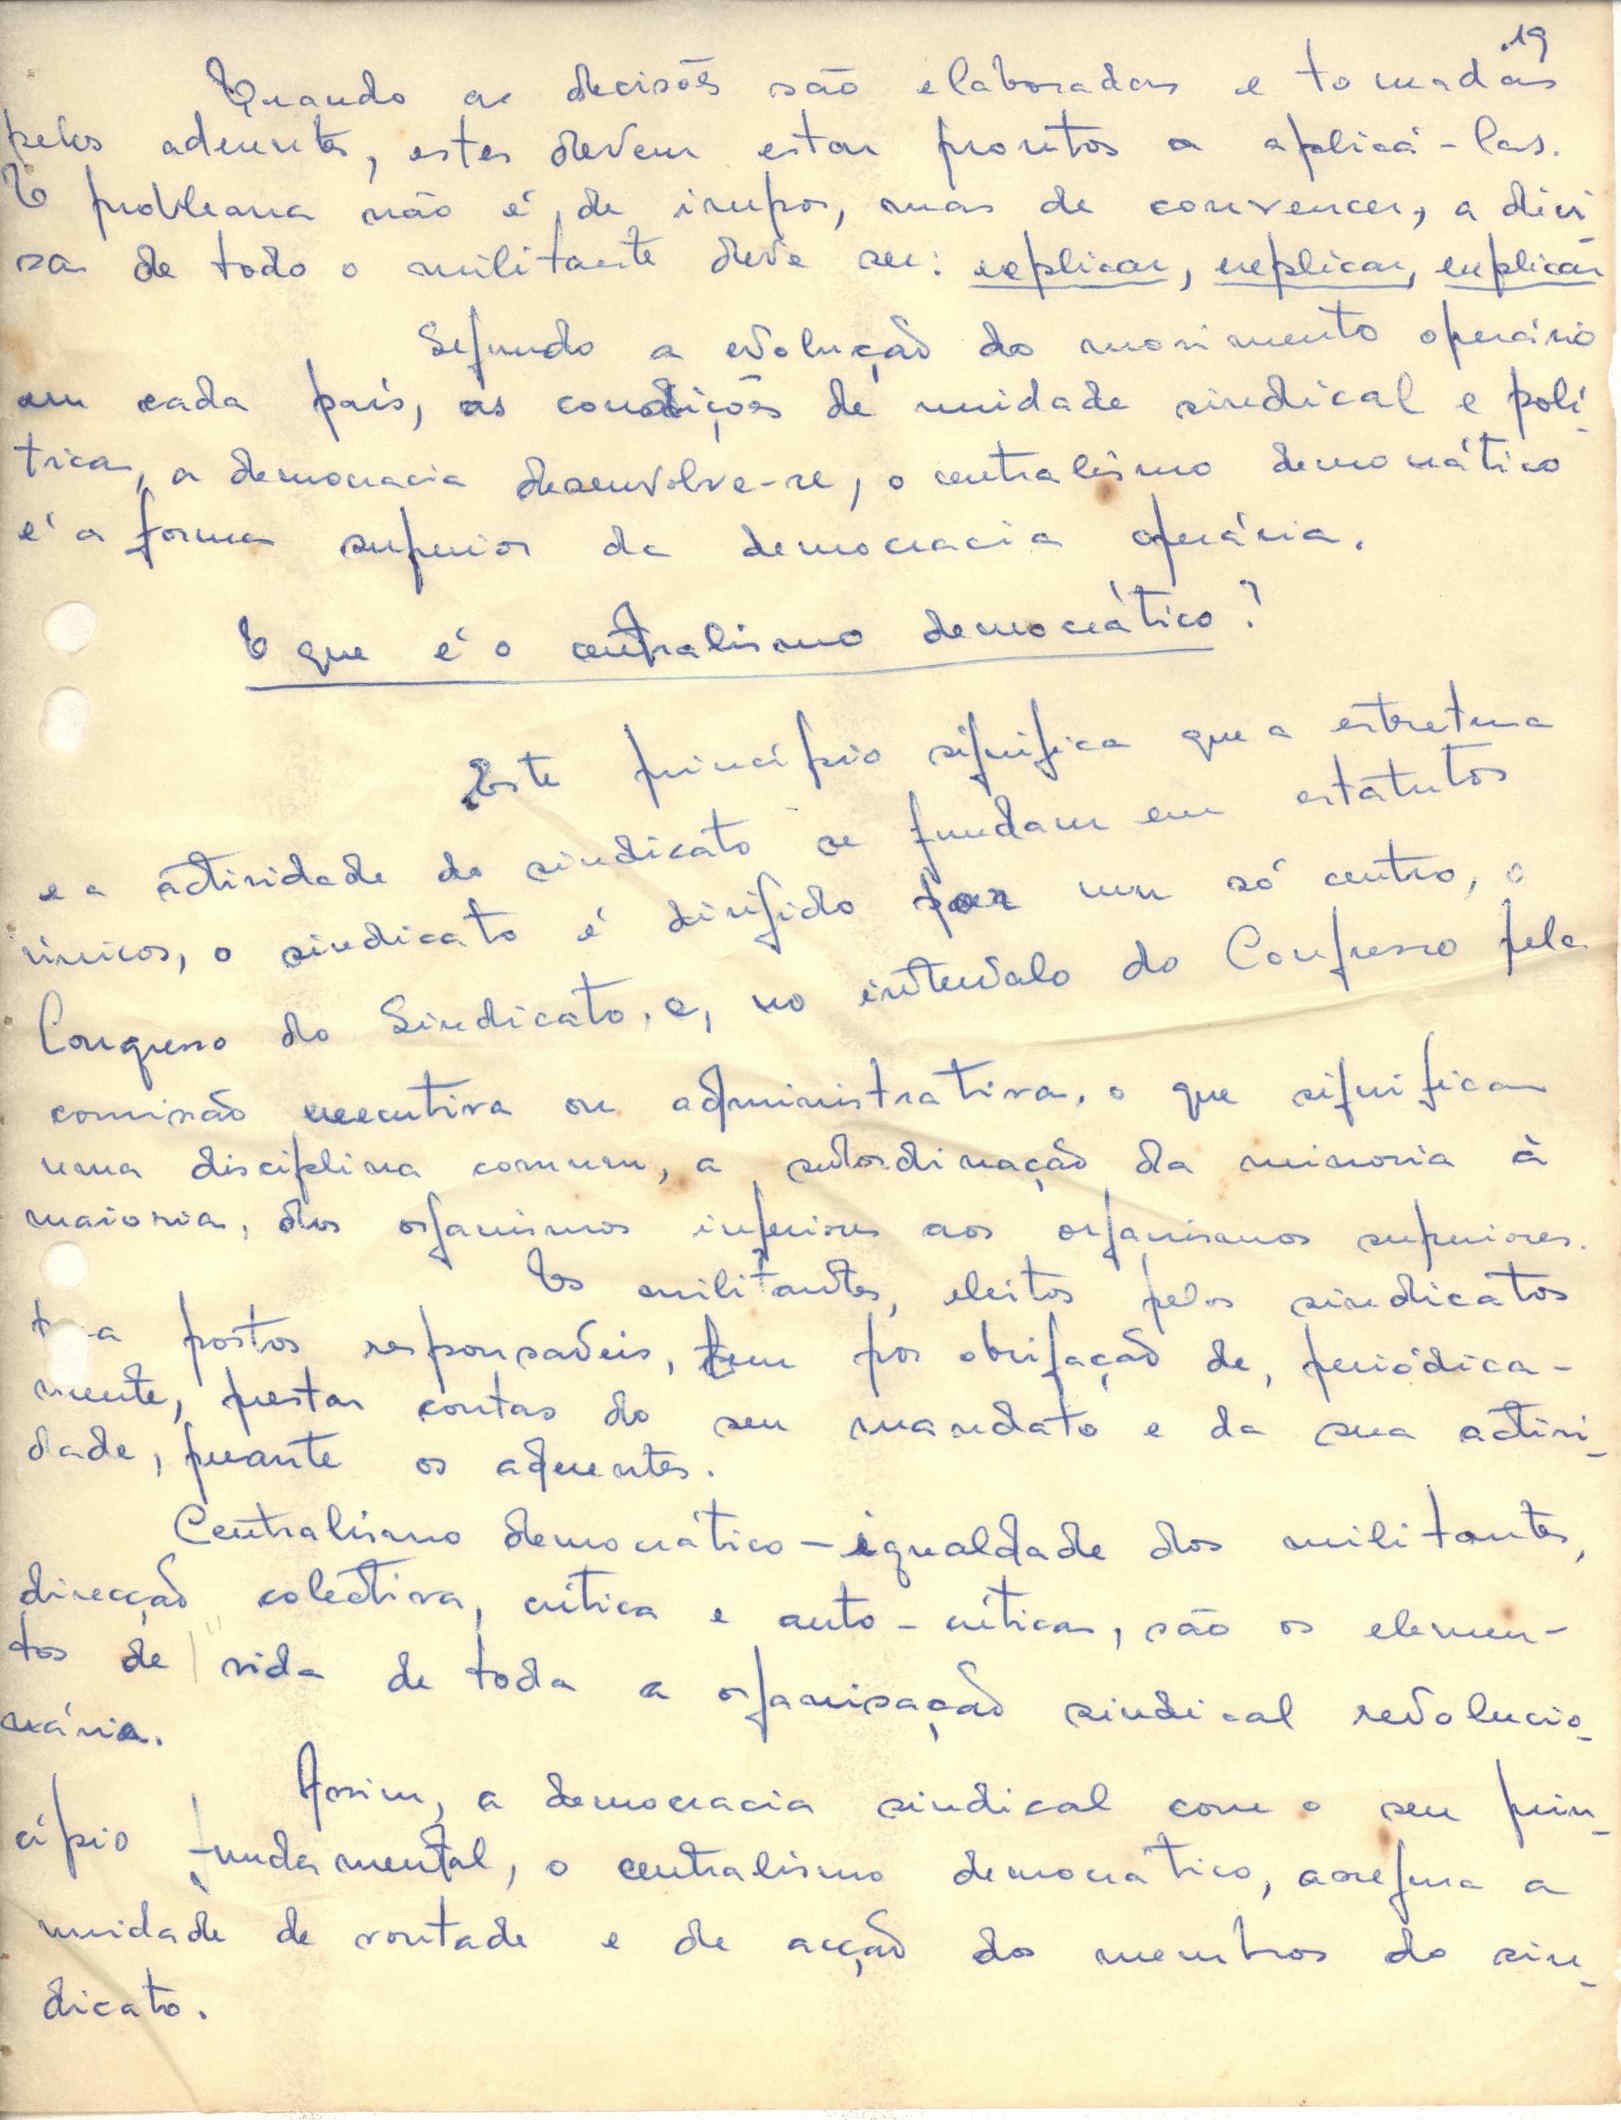 19
Quando as decisões são elaboradas e tomadas
pelos aderentes, estes devem estar prontos a aplicá-las.
O problema não é, de impor, mas de convencer, a divi
sa de todo o militante deve ser: explicar, explicar, explicar
Segundo a evolução do movimento operário
em cada país, as condições de unidade sindical e polí-
tica, a democracia desenvolve-se, o centralismo democrático
é a forma superior da democracia operária.
O que é o centralismo democrático?
Este princípio significa que a estrutura
e a actividade do sindicato se fundam em estatutos
únicos, o sindicato é dirigido por um só centro, o
Congresso do Sindicato, e, no intervalo do Congresso pela
comissão executiva ou administrativa, o que significa
uma disciplina comum, a subordinação da minoria à
maioria, dos organismos inferiores aos organismos superiores.
Os militantes, eleitos pelos sindicatos
a postos responsaveis, tem por obrigação de, periódica-
mente, prestar contas do seu mandato e da sua activi-
dade, perante os aderentes.
Centralismo democrático - igualdade dos militantes,
direcção colectiva, crítica e auto-crítica, são os elemen-
tos de vida de toda a organização sindical revolucio-
nária.
Assim, a democracia sindical com o seu prin-
cípio fundamental, o centralismo democrático, assegura a
unidade de vontade e de acção dos membros do sin-
dicato.